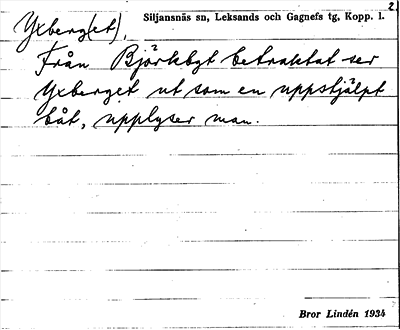 2.
Yxberg(et), Siljansnäs sn, Leksands och Gagnefs tg, Kopp. l.
Från Björkbgt betraktat ser
Yxberget ut som en uppstjälpt
båt, upplyser man.
Bror Lindén 1934